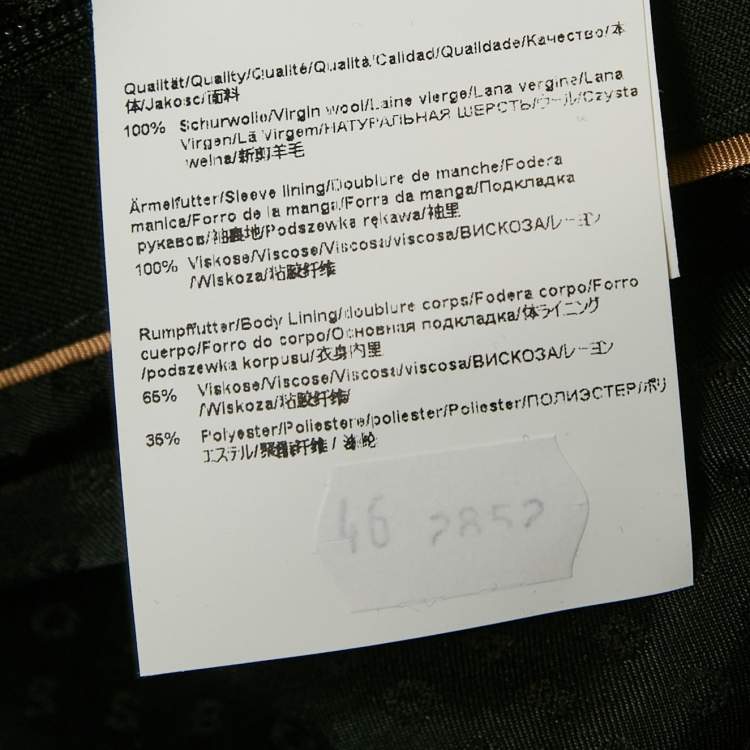 Qualität/Quality/Qualité/Qualità/Calidad/Qualidade/Качество/本
体/Jakosc/面料
100% Schurwolle/Virgin wool/Laine vierge/Lana vergine/Lana
Virgen/Lã Virgem/НАТУРАЛЬНАЯ ШЕРСТЬ/ウール/Czysta
welna/新剪羊毛
Ärmelfutter/Sleeve lining/Doublure de manche/Fodera
manica/Forro de la manga/Forra da manga/Подкладка
рукавов/袖裏地/Podszewka rękawa/袖里
100% Viskose/Viscose/Viscosa/viscosa/ВИСКОЗА/レーヨン
/Wiskoza/粘胶纤维
Rumpffutter/Body Lining/doublure corps/Fodera corpo/Forro
cuerpo/Forro do corpo/Основная подкладка/体ライニング
/podszewka korpusu/衣身内里
65% Viskose/Viscose/Viscosa/viscosa/ВИСКОЗА/レーヨン
/Wiskoza/粘胶纤维/
35% Polyester/Poliestere/poliester/Poliester/ПОЛИЭСТЕР/ポリ
エステル/聚酯纤维/涤纶
46 2852